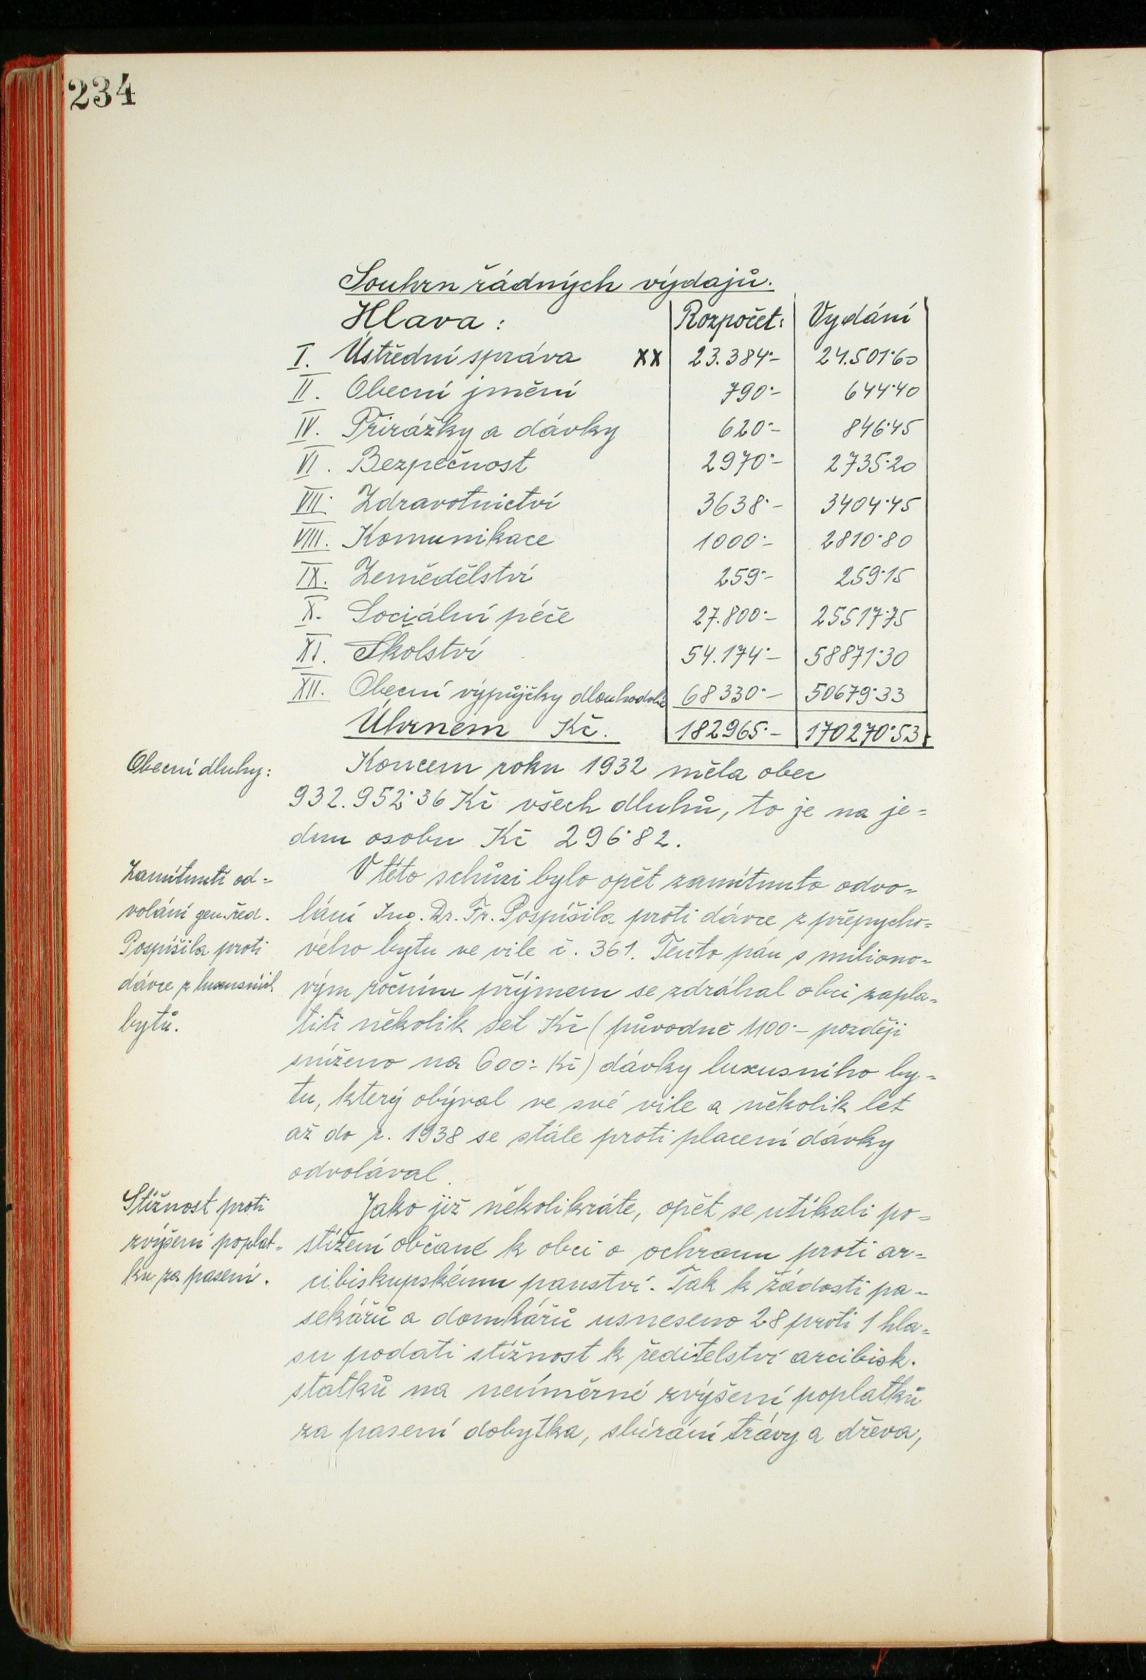 234
Souhrn řádných výdajů.
Hlava: Rozpočet: Vydání
I. Ústřední správa xx 23.384·- 24.501·60
II. Obecní jmění 790·- 644·40
IV. Přirážky a dávky 620·- 846·45
VI. Bezpečnost 2970·- 2735·20
VII. Zdravotnictví 3638·- 3404·45
VIII. Komunikace 1000·- 2810·80
IX. Zemědělství 259·- 259·15
X. Sociální péče 27.800·- 25517·75
XI. Školství 54.174·- 58871·30
XII. Obecní výpůjčky dlouhodobé 68330·- 50679·33
Úhrnem Kč. 182965·- 170270·53
Obecní dluhy:
Koncem roku 1932 měla obec
932.952·36 Kč všech dluhů, to je na je-
dnu osobu Kč 296·82.
Zamítnutí od-
volání gen. řed.
Pospíšila proti
dávce z luxusních
bytů.
V této schůzi bylo opět zamítnuto odvo-
lání Ing. Dr. Fr. Pospíšila proti dávce z přepycho-
vého bytu ve vile č. 361. Tento pán s miliono-
vým ročním příjmem se zdráhal obci zapla-
titi několik set Kč (původně 1100·- později
sníženo na 600·- Kč) dávky luxusního by-
tu, který obýval ve své vile a několik let
až do r. 1938 se stále proti placení dávky
odvolával.
Stížnost proti
zvýšení poplat-
ku za pasení.
Jako již několikráte, opět se utíkali po-
stižení občané k obci o ochranu proti ar-
cibiskupskému panství. Tak k žádosti pa-
sekářů a domkářů usneseno 28 proti 1 hla-
su podati stížnost k ředitelství arcibisk.
statků na neúměrné zvýšení poplatků
za pasení dobytka, sbírání trávy a dřeva,